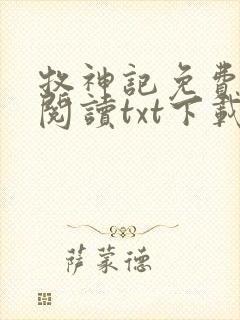 牧神記免費
閱讀txt下載
萨蒙德